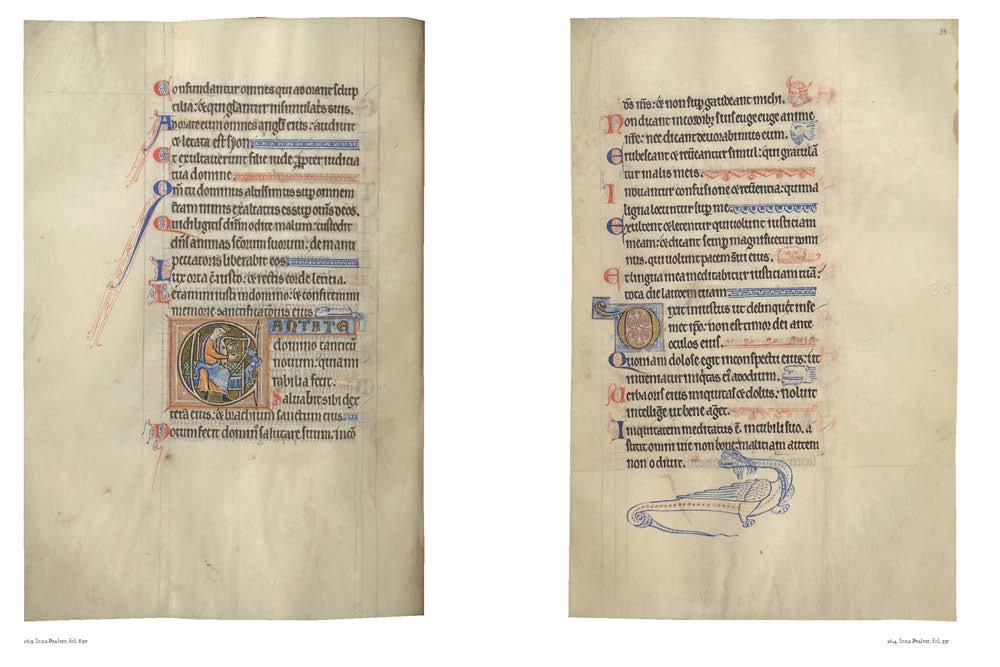 Confundantur omnes qui adorant sculp
tilia: & qui glantur in simulacris suis.
Adorate eum omnes angli eius: audiuit
& letata est syon.
Et exultauerunt filie iude: ꝓpter iudicia
tua domine.
Qm̄ tu dominus altissimus suꝑ omnem
tram nimis exaltatus es suꝑ om̄s deos.
Qui diligitis dn̄m odite malum: custodit
dn̄s animas scōrum suorum: de manu
peccatoris liberabit eos.
Lux orta ē iusto: & rectis corde leticia.
Letamini iusti in domino: & confitemini
memorie sanctificationis eius
CANTATE
domino canticū
nouum: quia mi
rabilia fecit.
Saluabit sibi dex
tera eius: & brachium sanctum eius
Notum fecit domin' salutare suum: in
26.3. Iona Psalter, fol. 85v
35
& non suꝑ gaudeant michi.
Non dicant in cordibȝ suis euge euge anime
nr̄e: nec dicant deuorabimus eum.
Erubescant & reuereantur simul: qui gratulā
tur malis meis.
Induantur confusione & reuerentia: qui ma
ligna locuntur suꝑ me.
Exultent & letentur qui uolunt iusticiam
meam: & dicant semꝑ magnificetur domi
nus. qui uolunt pacem eius.
Et lingua mea meditabitur iusticiam tuā:
tota die laudem tuam.
Dixit iniustus ut delinquat in se
met ipso: non est timor dei ante
oculos eius.
Quoniam dolose egit in conspectu eius: ut
inueniatur iniqtas ei' ad odium.
Uerba oris eius iniquitas & dolus: noluit
intelligere ut bene ageret.
Iniquitatem meditatus ē in cubili suo. a
stitit omni uie non bone: maliciam autem
non odiuit.
26.4. Iona Psalter, fol. 35r